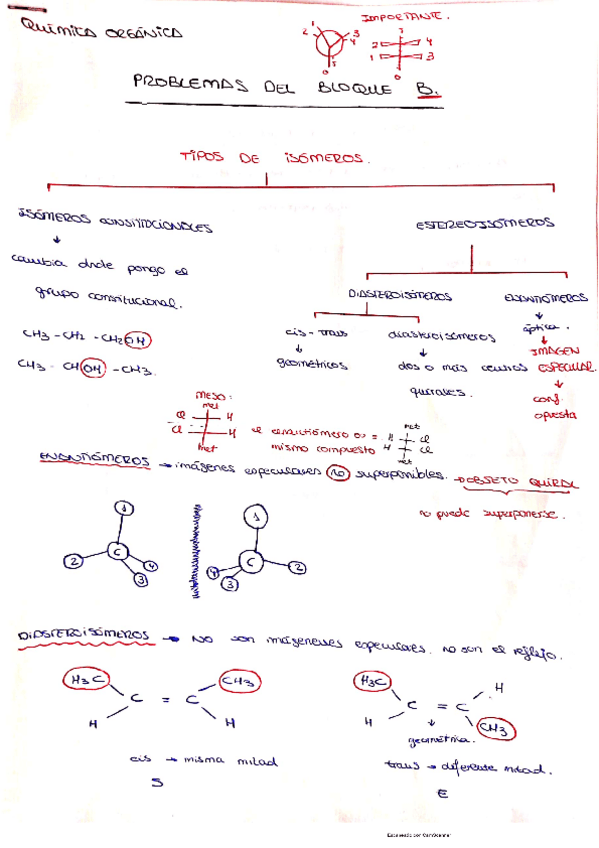 QUÍMICA ORGÁNICA
IMPORTANTE.
1
2 3
4
5
0
2 4
1 3
0
PROBLEMAS DEL BLOQUE B.
TIPOS DE ISÓMEROS.
ISÓMEROS CONSTITUCIONALES
ESTEREOISÓMEROS
cambia dnde pongo el
grupo constitucional.
DIASTEROISÓMEROS
ENANTIÓMEROS
cis-trans
geométricos
diasteroisómeros
dos o más centros
quirales.
óptica.
IMAGEN
ESPECULAR.
conf.
opuesta
CH3 - CH2 - CH2OH
CH3 - CHOH - CH3.
MESO:
met
Cl H
Cl H
met
el enantiómero es =
mismo compuesto
met
H Cl
H Cl
met
ENANTIÓMEROS → imágenes especulares no superponibles. → OBJETO QUIRAL
no puede superponerse.
1
C
2
3
4
1
C
4
3
2
DIASTEROISÓMEROS → NO son imágenes especulares, no son el reflejo.
H3C CH3
C = C
H H
cis → misma mitad
S
H3C H
C = C
H CH3
geometría.
trans → diferente mitad.
E
Escaneado con CamScanner